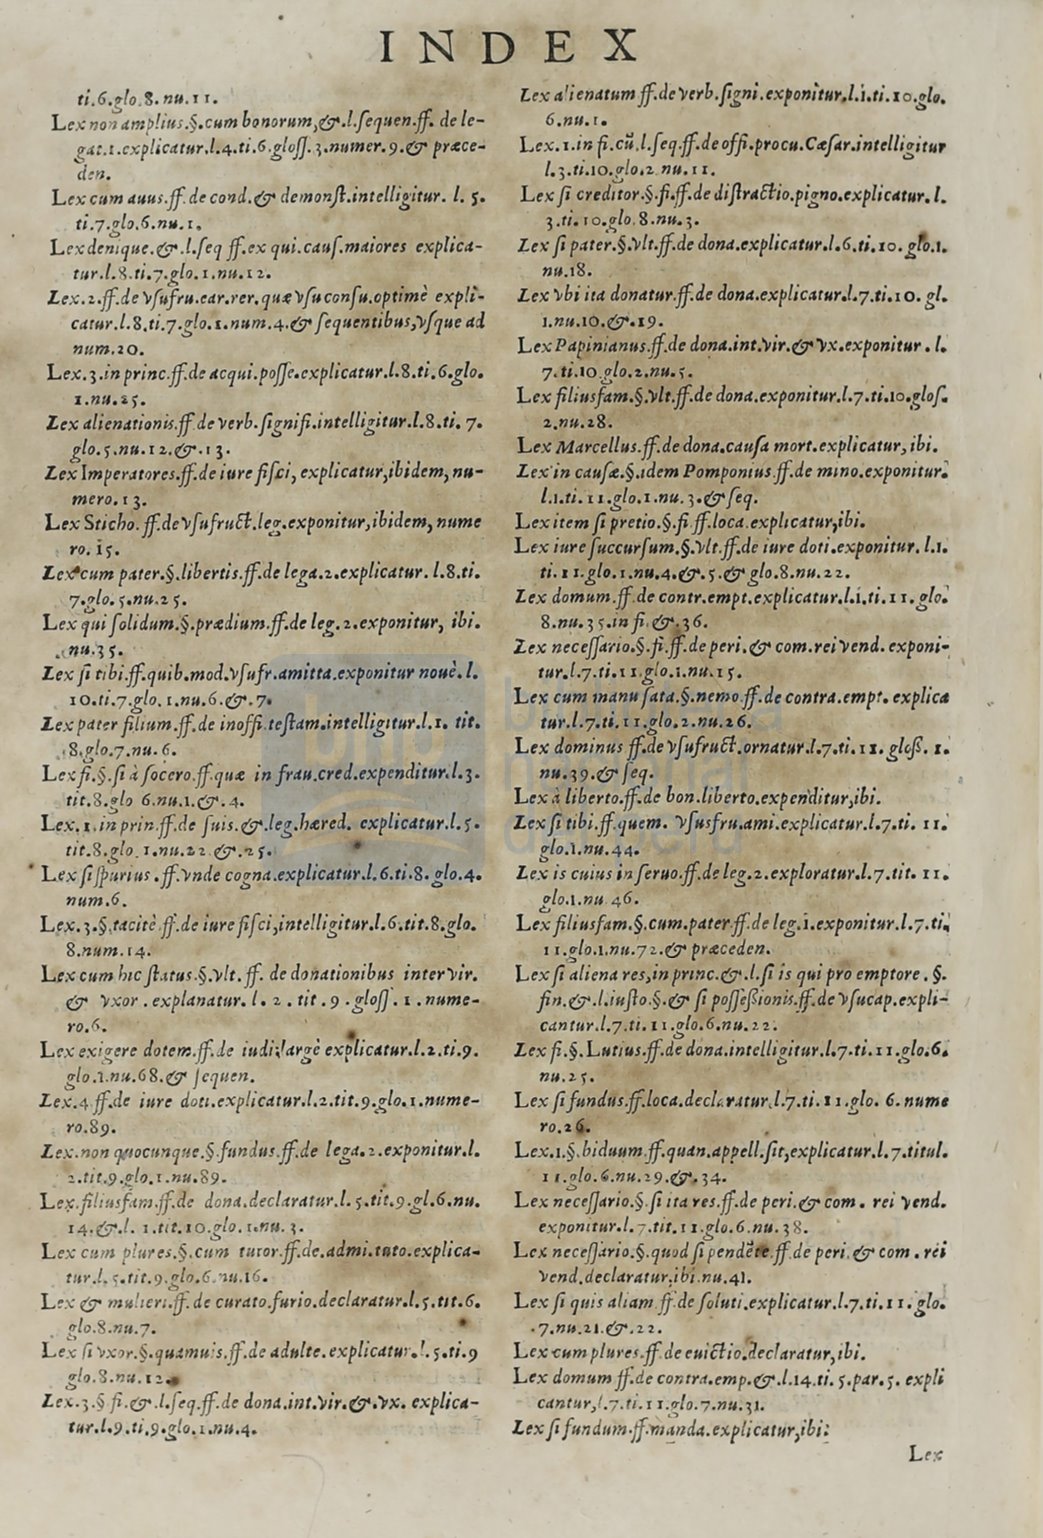 INDEX
ti.6.glo.8.nu.11.
Lex non amplius.§.cum bonorum,&.l.sequen.ff. de le-
gat.1.explicatur.l.4.ti.6.gloss.3.numer.9.& præce-
den.
Lex cum auus.ff.de cond.& demonst.intelligitur. l. 5.
ti.7.glo.6.nu.1.
Lex denique.&.l.seq ff.ex qui.caus.maiores explica-
tur.l.8.ti.7.glo.1.nu.12.
Lex.2.ff.de vsufru.ear.rer.quæ vsu consu.optimè expli-
catur.l.8.ti.7.glo.1.num.4.& sequentibus,vsque ad
num.20.
Lex.3.in princ.ff.de acqui.posse.explicatur.l.8.ti.6.glo.
1.nu.25.
Lex alienationis.ff.de verb.signifi.intelligitur.l.8.ti.7.
glo.5.nu.12.&.13.
Lex Imperatores.ff.de iure fisci, explicatur,ibidem, nu-
mero.13.
Lex Sticho. ff.de vsufruct.leg.exponitur,ibidem, nume
ro.15.
Lex cum pater.§.libertis.ff.de lega.2.explicatur. l.8.ti.
7.glo.5.nu.25.
Lex qui solidum.§.prædium.ff.de leg.2.exponitur, ibi.
nu.35.
Lex si tibi.ff.quib.mod.vsufr.amitta.exponitur nouè.l.
10.ti.7.glo.1.nu.6.&.7.
Lex pater filium.ff.de inoffi.testam.intelligitur.l.1. tit.
8.glo.7.nu.6.
Lex fi.§.si à socero.ff.quæ in frau.cred.expenditur.l.3.
tit.8.glo 6.nu.1.&.4.
Lex.1.in prin.ff.de suis.&.leg.hæred. explicatur.l.5.
tit.8.glo.1.nu.22.&.25.
Lex si spurius.ff.vnde cogna.explicatur.l.6.ti.8.glo.4.
num.6.
Lex.3.§.tacitè ff.de iure fisci,intelligitur.l.6.tit.8.glo.
8.num.14.
Lex cum hic status.§.vlt.ff. de donationibus inter vir.
& vxor.explanatur. l. 2. tit. 9. gloss. 1. nume-
ro.6.
Lex exigere dotem.ff.de iudi.largè explicatur.l.2.ti.9.
glo.1.nu.68.& sequen.
Lex.4.ff.de iure doti.explicatur.l.2.tit.9.glo.1.nume-
ro.89.
Lex.non quocunque.§.fundus.ff.de lega.2.exponitur.l.
2.tit.9.glo.1.nu.89.
Lex.filiusfam.ff.de dona.declaratur.l.5.tit.9.gl.6.nu.
14.&.l. 1.tit.10.glo.1.nu.3.
Lex cum plures.§.cum tutor.ff.de.admi.tuto.explica-
tur.l.5.tit.9.glo.6.nu.16.
Lex & mulieri.ff.de curato.furio.declaratur.l.5.tit.6.
glo.8.nu.7.
Lex si vxor.§.quamuis.ff.de adulte.explicatur.l.5.ti.9
glo.8.nu.12.
Lex.3.§ fi.&.l.seq.ff.de dona.int.vir.&.vx. explica-
tur.l.9.ti.9.glo.1.nu.4.
Lex alienatum ff.de verb.signi.exponitur.l.1.ti.10.glo.
6.nu.1.
Lex.1.in fi.cū.l.seq.ff.de offi.procu.Cæsar.intelligitur
l.3.ti.10.glo.2.nu.11.
Lex si creditor.§.fi.ff.de distractio.pigno.explicatur.l.
3.ti.10.glo.8.nu.3.
Lex si pater.§.vlt.ff.de dona.explicatur.l.6.ti.10.glo.1.
nu.18.
Lex vbi ita donatur.ff.de dona.explicatur.l.7.ti.10. gl.
1.nu.10.&.19.
Lex Papinianus.ff.de dona.int.vir.& vx.exponitur.l.
7.ti.10.glo.2.nu.5.
Lex filiusfam.§.vlt.ff.de dona.exponitur.l.7.ti.10.glos.
2.nu.28.
Lex Marcellus.ff.de dona.causa mort.explicatur, ibi.
Lex in causæ.§.idem Pomponius ff.de mino.exponitur.
l.1.ti.11.glo.1.nu.3.& seq.
Lex item si pretio.§.fi.ff.loca.explicatur,ibi.
Lex iure succursum.§.vlt.ff.de iure doti.exponitur. l.1.
ti.11.glo.1.nu.4.&.5.& glo.8.nu.22.
Lex domum.ff.de contr.empt.explicatur.l.1.ti.11.glo.
8.nu.35.in fi.&.36.
Lex necessario.§.fi.ff.de peri.& com.rei vend. exponi-
tur.l.7.ti.11.glo.1.nu.15.
Lex cum manu sata.§.nemo.ff.de contra.empt. explica
tur.l.7.ti.11.glo.2.nu.26.
Lex dominus ff.de vsufruct.ornatur.l.7.ti.11. gloß. 1.
nu.39.& seq.
Lex à liberto.ff.de bon.liberto.expenditur,ibi.
Lex si tibi.ff.quem. vsusfru.ami.explicatur.l.7.ti. 11.
glo.1.nu.44.
Lex is cuius in seruo.ff.de leg.2.exploratur.l.7.tit. 11.
glo.1.nu 46.
Lex filiusfam.§.cum.pater.ff.de leg.1.exponitur.l.7.ti.
11.glo.1.nu.72.& præceden.
Lex si aliena res,in princ.&.l.si is qui pro emptore. §.
fin.&.l.iusto.§.& si possessionis.ff.de vsucap.expli-
cantur.l.7.ti.11.glo.6.nu.22.
Lex fi.§.Lutius.ff.de dona.intelligitur.l.7.ti.11.glo.6.
nu.25.
Lex si fundus.ff.loca.declaratur.l.7.ti.11.glo. 6. nume
ro.26.
Lex.1.§.biduum.ff.quan.appell.sit,explicatur.l.7.titul.
11.glo.6.nu.29.&.34.
Lex necessario.§.si ita res.ff.de peri.& com. rei vend.
exponitur.l.7.tit.11.glo.6.nu.38.
Lex necessario.§.quod si pendēte.ff.de peri.& com. rei
vend.declaratur,ibi.nu.41.
Lex si quis aliam ff.de soluti.explicatur.l.7.ti.11.glo.
7.nu.21.&.22.
Lex cum plures.ff.de euictio.declaratur,ibi.
Lex domum ff.de contra.emp.&.l.14.ti.5.par.5. expli
cantur,l.7.ti.11.glo.7.nu.31.
Lex si fundum.ff.manda.explicatur,ibi:
Lex